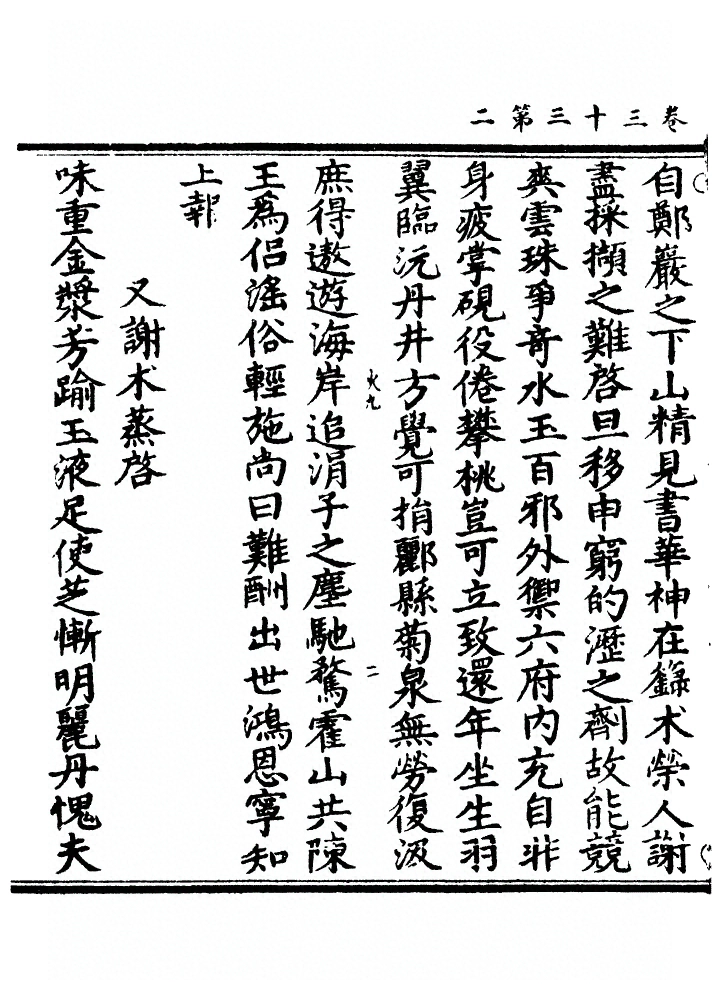 卷三十三第二
自鄭巖之下山精見書華神在籙朮榮人謝
盡採擷之難啓旦移申窮的瀝之劑故能競
爽雲珠爭奇水玉百邪外禦六府內充自非
身疲掌硯役倦攀桃豈可立致還年坐生羽
翼臨沅丹井方覺可捐酈縣菊泉無勞復汲
火九
二
庶得遨遊海岸追涓子之塵馳騖霍山共陳
王爲侣滛俗輕施尚曰難酬出世鴻恩寧知
上報
又謝朮蒸啓
味重金漿芳踰玉液足使芝慚明麗丹愧夫